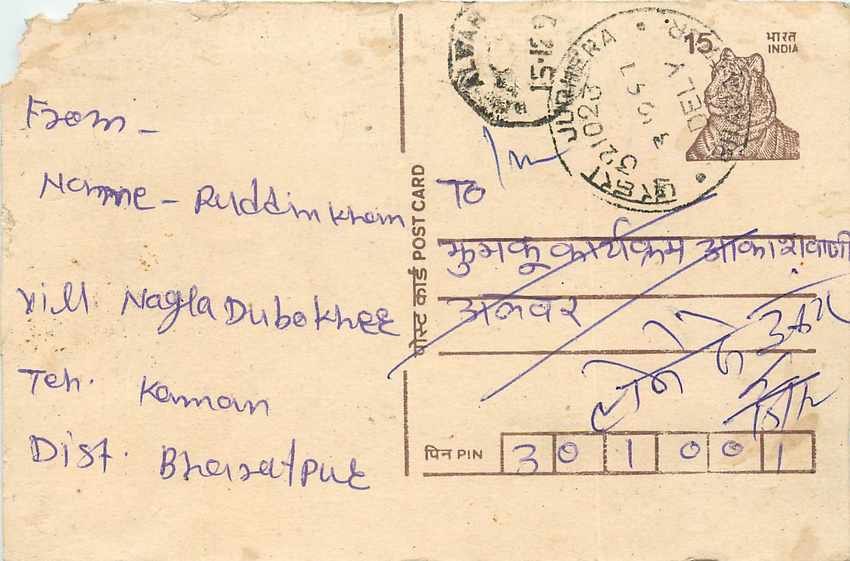 From -
Name - Ruddin Khan
Vill. Nagla Dubokhee
Teh. Kaman
Dist. Bharatpur
पोस्ट कार्ड POST CARD
ALWAR
15-12-9
JURHERA
321023
15
भारत
INDIA
TO
झुमकू कार्यक्रम आकाशवाणी
अलवर
पिन PIN 301001